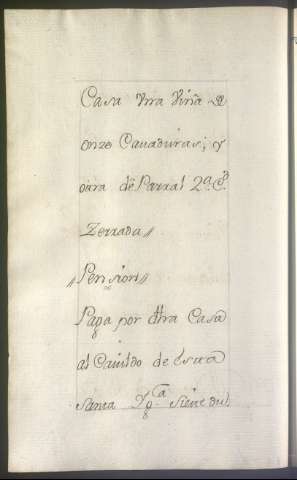 Casa una viña de
onze Cauaduras; y
otra de Parral 2ª. C.
Zerrada //
// Pension //
Paga por dha Casa
al Cauildo de esta
santa Yg.ª siete du